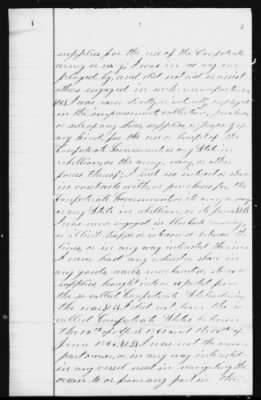 supplies for the use of the Confederate
army or navy; I was in no way em-
ployed by, and did not aid or assist
others engaged in such manufacture
I was never directly or indirectly employed
in the impressment collection, purchase
or sale of any stores, supplies, or property of
any kind, for the use or benefit of the
Confederate Government, or any State in
rebellion, or the army, navy, or other
forces thereof; I had no interest or share
in contracts with, or purchases for the
Confederate Government or its army or navy
or any State in rebellion, or its forces
I was never engaged in blockade running
or illicit traffic or intercourse between the
lines, or in any way interested therein
I never had any interest or share in
any goods, wares, merchandise, stores or
supplies, brought into or exported from
the so called Confederate States during
the war; I did not leave the so
called Confederate States between
the 19th of April 1861 and the 19th of
June 1865 I was not the owner
part owner, or in any way interested
in any vessel used in navigating the
to or from any port in the